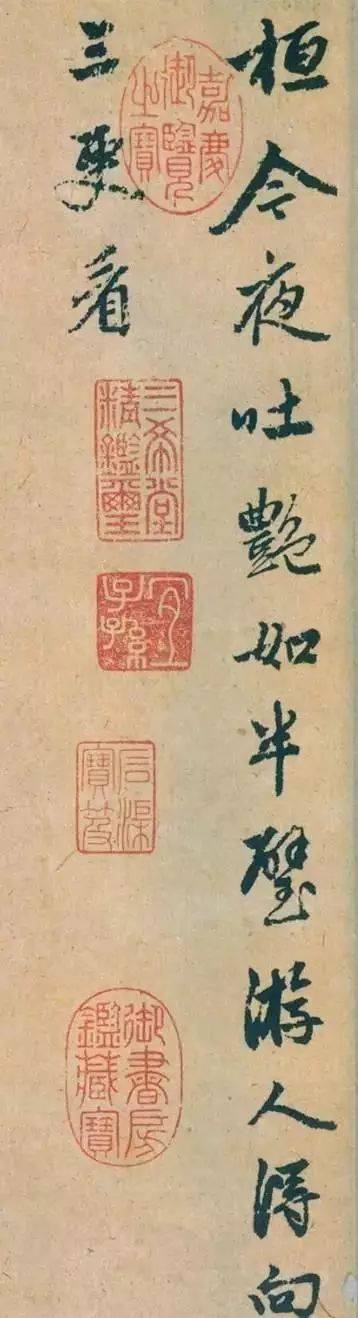 桓今夜吐艷如半璧游人得向
三更看
嘉慶御覽之寶
三希堂精鑑璽
宜子孫
石渠寶笈
御書房鑑藏寶